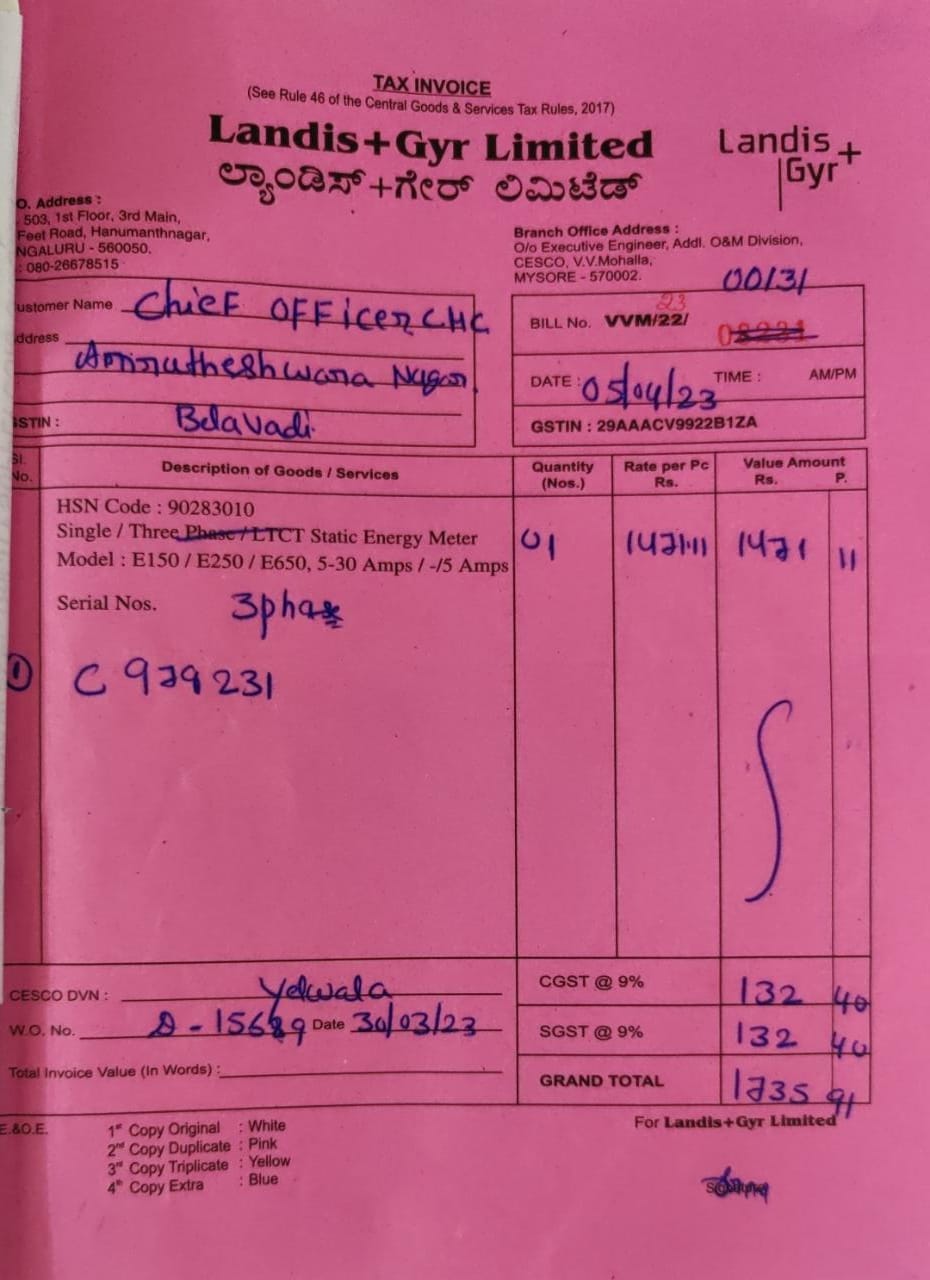 TAX INVOICE
(See Rule 46 of the Central Goods & Services Tax Rules, 2017)
Landis+Gyr Limited
ಲ್ಯಾಂಡಿಸ್+ಗೇರ್ ಲಿಮಿಟೆಡ್
Landis+
Gyr
O. Address :
503, 1st Floor, 3rd Main,
Feet Road, Hanumanthnagar,
NGALURU - 560050.
: 080-26678515
Branch Office Address :
O/o Executive Engineer, Addl. O&M Division,
CESCO, V.V.Mohalla,
MYSORE - 570002.
00131
ustomer Name Chief OFFicer CHC
ddress
Amrutheshwara Nagar
STIN : Belavadi
BILL No. VVM/22/ 23
DATE : 05/04/23 TIME : AM/PM
GSTIN : 29AAACV9922B1ZA
Sl. No. Description of Goods / Services Quantity (Nos.) Rate per Pc Rs. Value Amount Rs. P.
HSN Code : 90283010
Single / Three Phase / LTCT Static Energy Meter 01 1471.11 1471 11
Model : E150 / E250 / E650, 5-30 Amps / -/5 Amps
Serial Nos. 3phase
① C 979231
CESCO DVN : Yelwala
W.O. No. Date 30/03/23
Total Invoice Value (In Words) :
CGST @ 9% 132 40
SGST @ 9% 132 40
GRAND TOTAL 1735 91
E.&O.E.
1st Copy Original : White
2nd Copy Duplicate : Pink
3rd Copy Triplicate : Yellow
4th Copy Extra : Blue
For Landis+Gyr Limited